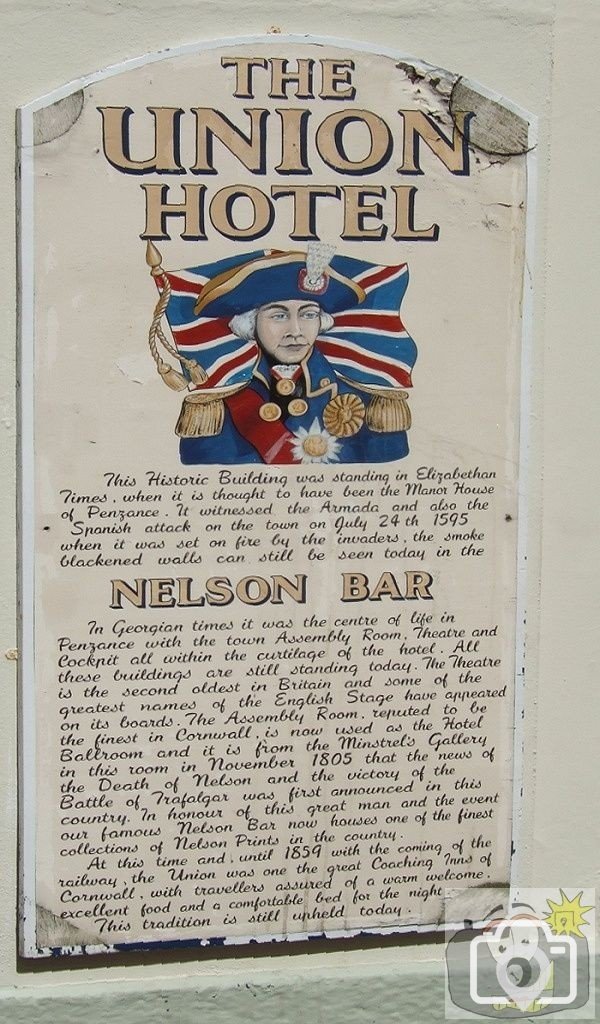 THE
UNION
HOTEL
This Historic Building was standing in Elizabethan
Times, when it is thought to have been the Manor House
of Penzance. It witnessed the Armada and also the
Spanish attack on the town on July 24th 1595
when it was set on fire by the invaders, the smoke
blackened walls can still be seen today in the
NELSON BAR
In Georgian times it was the centre of life in
Penzance with the town Assembly Room, Theatre and
Cockpit all within the curtilage of the hotel. All
these buildings are still standing today. The Theatre
is the second oldest in Britain and some of the
greatest names of the English Stage have appeared
on its boards. The Assembly Room, reputed to be
the finest in Cornwall, is now used as the Hotel
Ballroom and it is from the Minstrel's Gallery
in this room in November 1805 that the news of
the Death of Nelson and the victory of the
Battle of Trafalgar was first announced in this
country. In honour of this great man and the event
our famous Nelson Bar now houses one of the finest
collections of Nelson Prints in the country.
At this time and, until 1859 with the coming of the
railway, the Union was one the great Coaching Inns of
Cornwall, with travellers assured of a warm welcome,
excellent food and a comfortable bed for the night
This tradition is still upheld today.